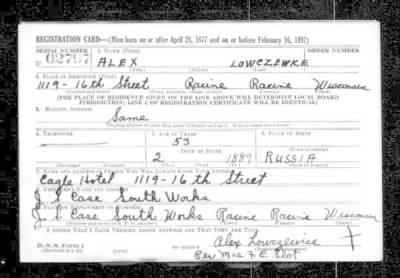 REGISTRATION CARD—(Men born on or after April 28, 1877 and on or before February 16, 1897)
SERIAL NUMBER 1. NAME (Print) ORDER NUMBER
U 02797 ALEX LOWCZEWKE
(First) (Middle) (Last)
2. PLACE OF RESIDENCE (Print)
1119-16th Street Racine Racine Wisconsin
[THE PLACE OF RESIDENCE GIVEN ON THE LINE ABOVE WILL DETERMINE LOCAL BOARD
JURISDICTION; LINE 2 OF REGISTRATION CERTIFICATE WILL BE IDENTICAL]
3. MAILING ADDRESS
Same
4. TELEPHONE 5. AGE IN YEARS 6. PLACE OF BIRTH
53
DATE OF BIRTH
2 1889 RUSSIA
7. NAME AND ADDRESS OF PERSON WHO WILL ALWAYS KNOW YOUR ADDRESS
Eagle Hotel 1119-16th Street
8. EMPLOYER'S NAME AND ADDRESS
J. I. Case South Works
9. PLACE OF EMPLOYMENT OR BUSINESS
J. I. Case South Works Racine Racine Wisconsin
I AFFIRM THAT I HAVE VERIFIED ABOVE ANSWERS AND THAT THEY ARE TRUE.
D. S. S. Form 1
Alex Lowczewice
Per Mrs F. E. Slot